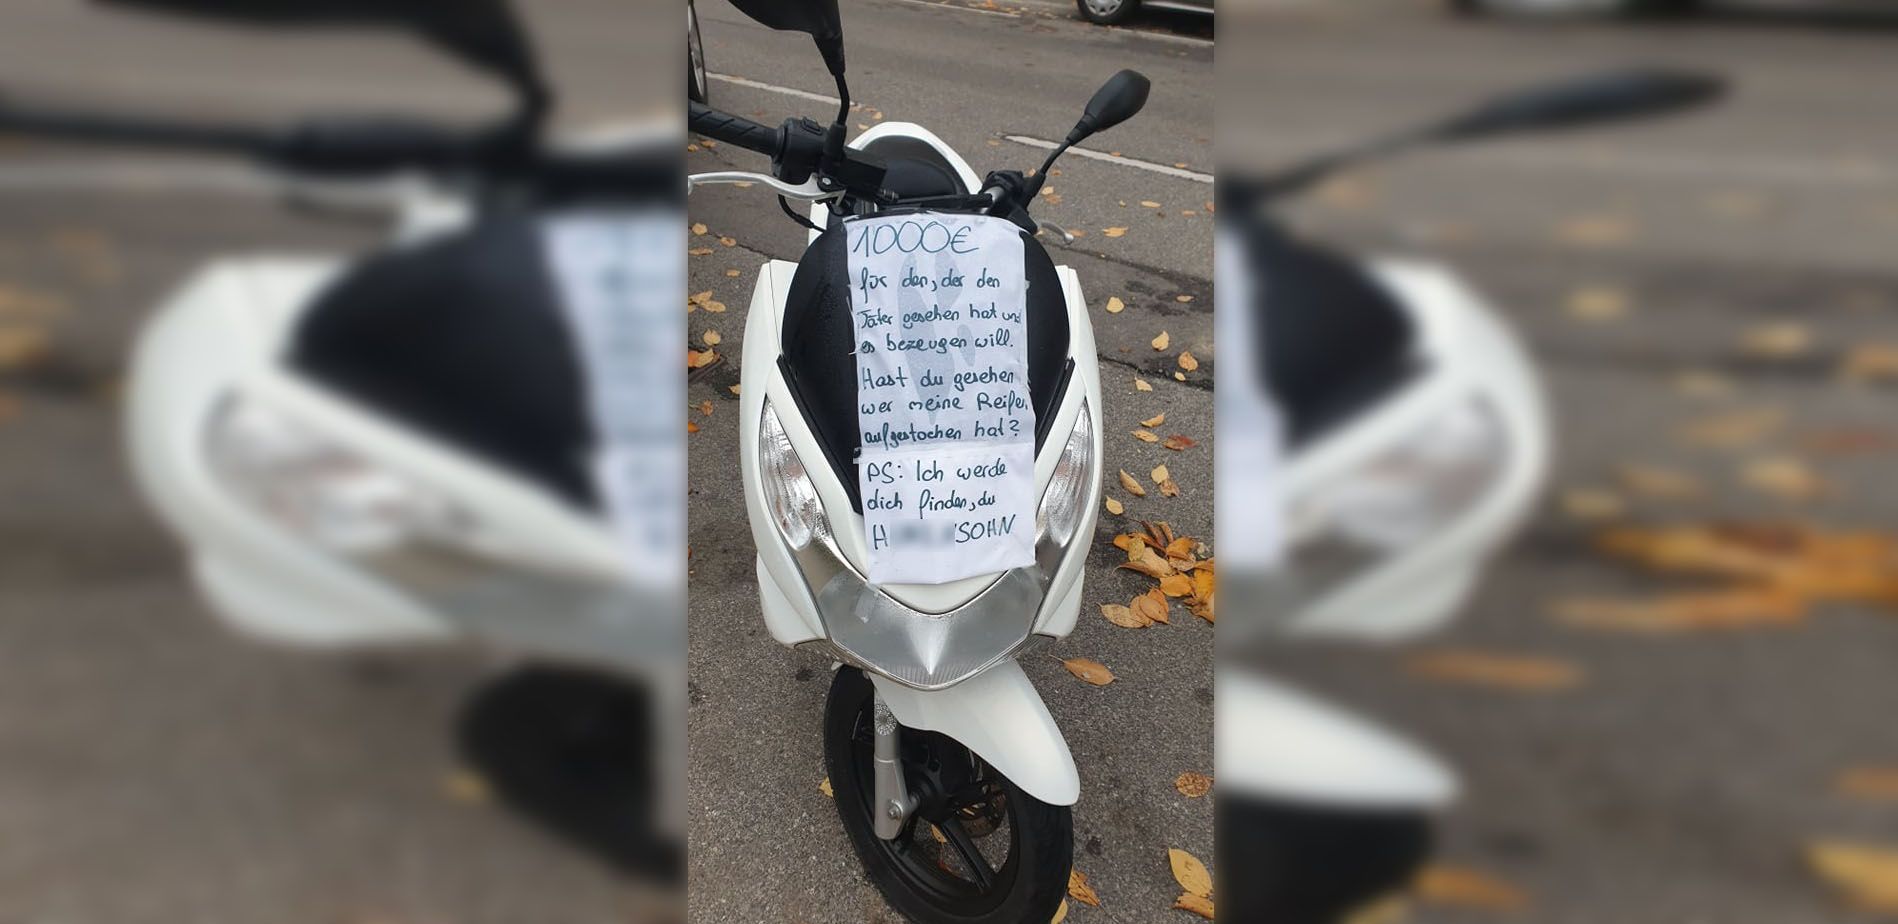 1000€
für den, der den
Täter gesehen hat und
es bezeugen will.
Hast du gesehen
wer meine Reifen
aufgestochen hat?
PS: Ich werde
dich finden, du
H SOHN